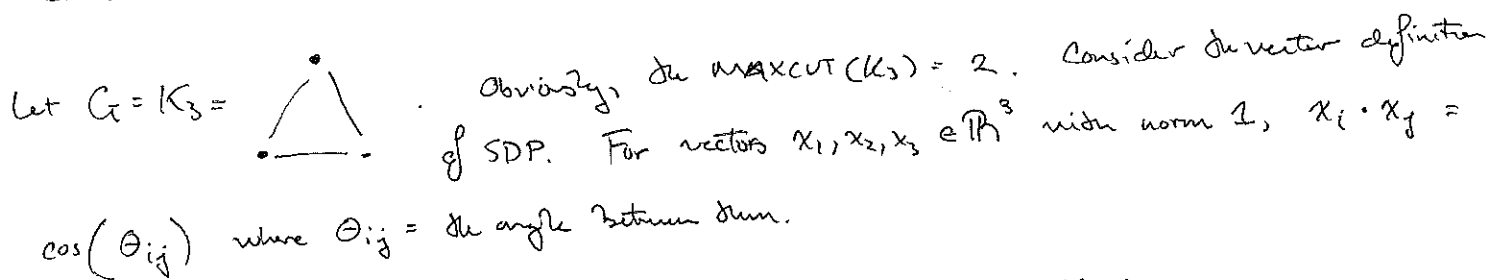 Let G = K₃ = . Obviously, the MAXCUT(K₃) = 2. Consider the vector definition
of SDP. For vectors x₁, x₂, x₃ ∈ ℝ³ with norm 1, xᵢ · xⱼ =
cos(θᵢⱼ) where θᵢⱼ = the angle between them.